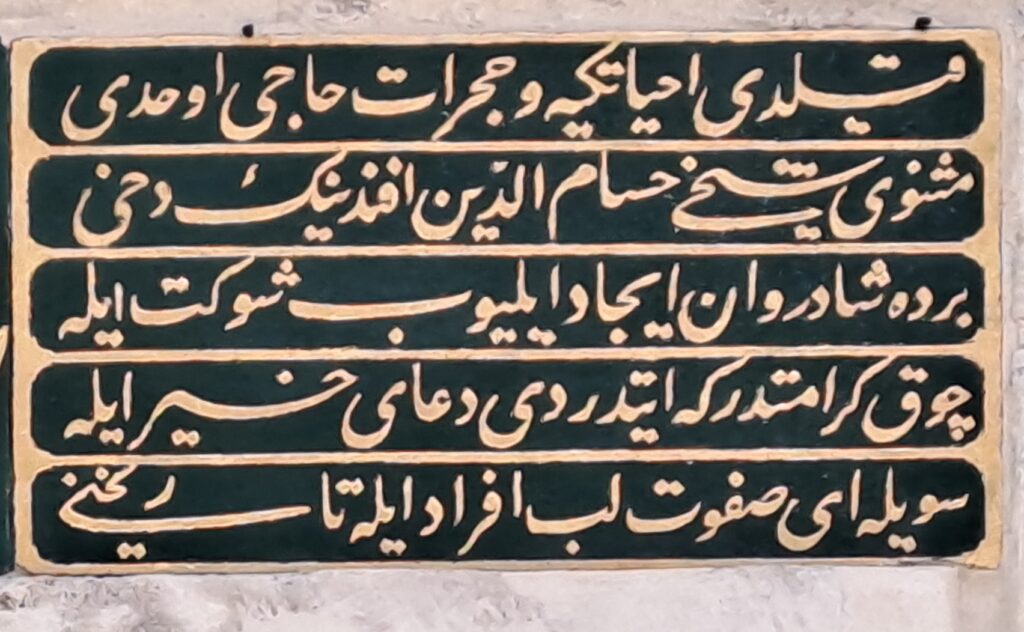 قیلدی احیا تکیه و حجرات حاجی اوحدی
مثنوی شیخی حسام الدّین افندینڭ دخی
برده شادروان ایجاد ایلیوب شوکت ایله
چوق کرامتدر که ایتدردی دعای خیر ایله
سویله ای صفوت لب افراد ایله تاریخنی